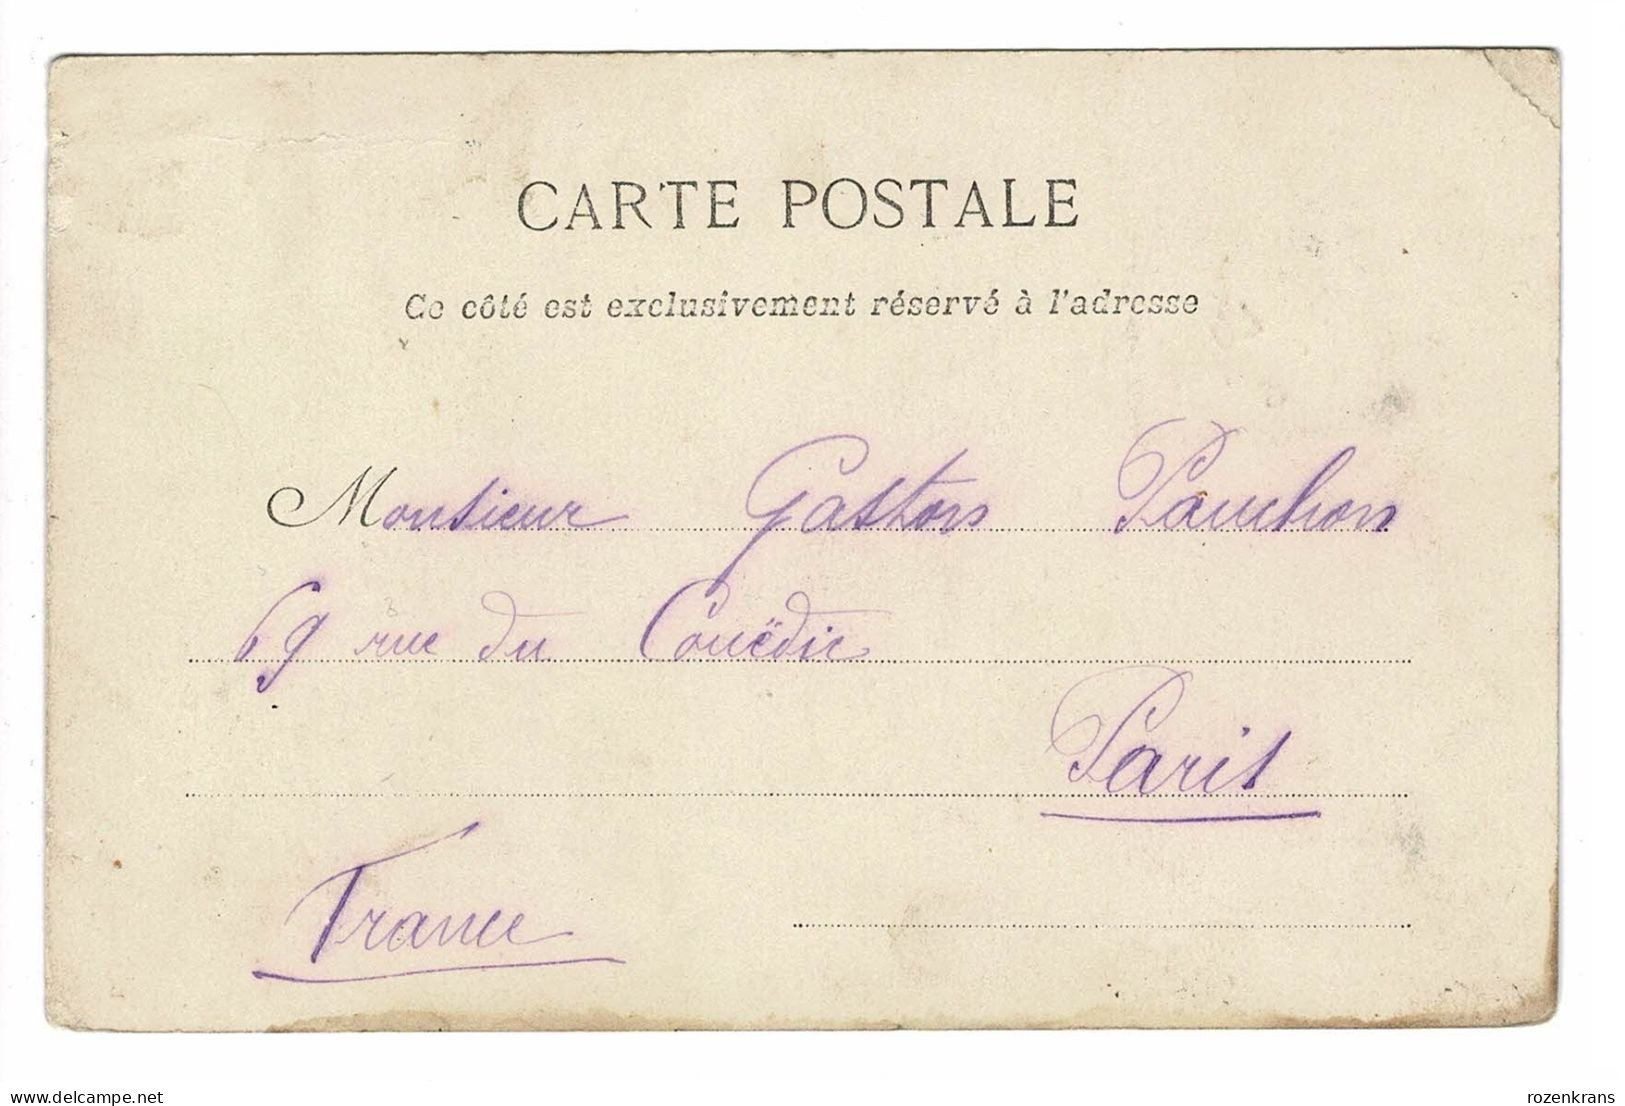 CARTE POSTALE
Ce côté est exclusivement réservé à l'adresse
Monsieur Gaston Pauchon
69 rue du Couëdic
Paris
France
delcampe.net
rozenkrans